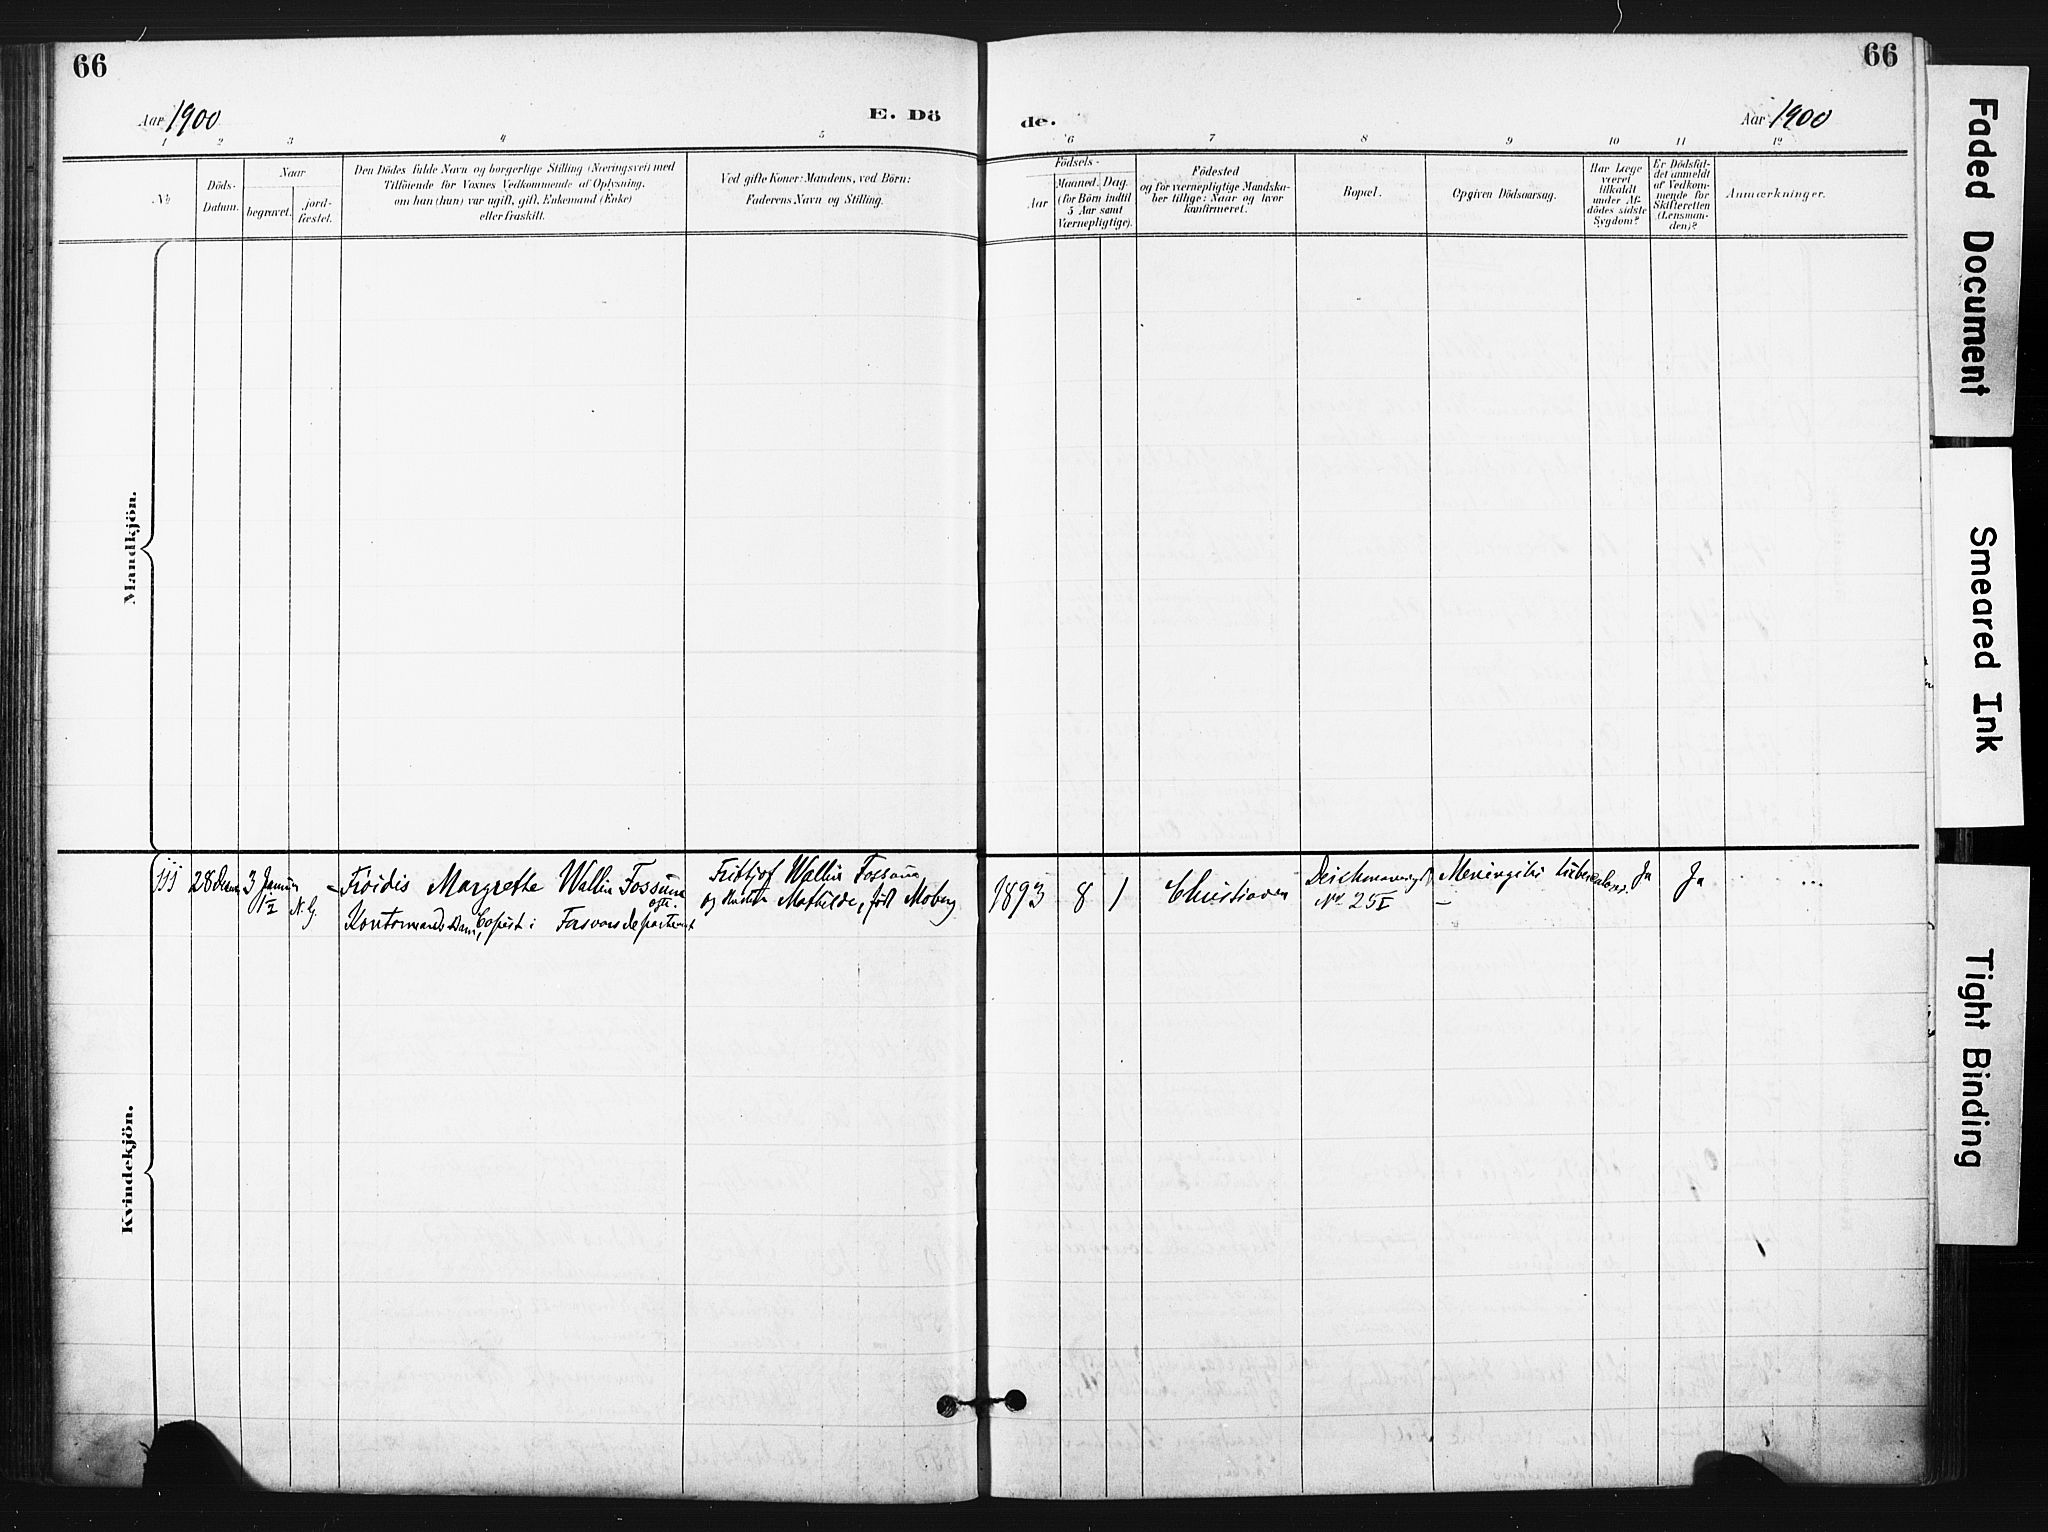 66
66
Aar 1900
E. Dö
de.
Aar 1900
1 2 3 4 5 6 7 8 9 10 11 12
№
Döds-
Datum.
Naar
begravet.
jord-
fæstet.
Den Dödes fulde Navn og borgerlige Stilling (Næringsvei) med
Tilföiende for Voxnes Vedkommende af Oplysning,
om han (hun) var ugift, gift, Enkemand (Enke)
eller fraskilt.
Ved gifte Koner: Mandens, ved Börn:
Faderens Navn og Stilling.
Födsels-
Aar
Maaned. Dag
(for Börn indtil
5 Aar samt
Værnepligtige).
Födested
og for værnepligtige Mandska-
ber tillige: Naar og hvor
konfirmeret.
Bopæl.
Opgiven Dödsaarsag.
Har Læge
været
tilkaldt
under Af-
dödes sidste
Sygdom?
Er Dödsfal-
det anmeldt
af Vedkom-
mende for
Skifteretten
(Lensman-
den)?
Anmærkninger.
Mandkjön.
Kvindekjön.
28 3 Januar Margrethe Wallin Fossum Fritjof Wallin Fossum 1893 8 1 Christiania Meningitis Ja Ja
N. G. og Mathilde, født Moberg № 25 I
Copist i
Faded Document
Smeared Ink
Tight Binding